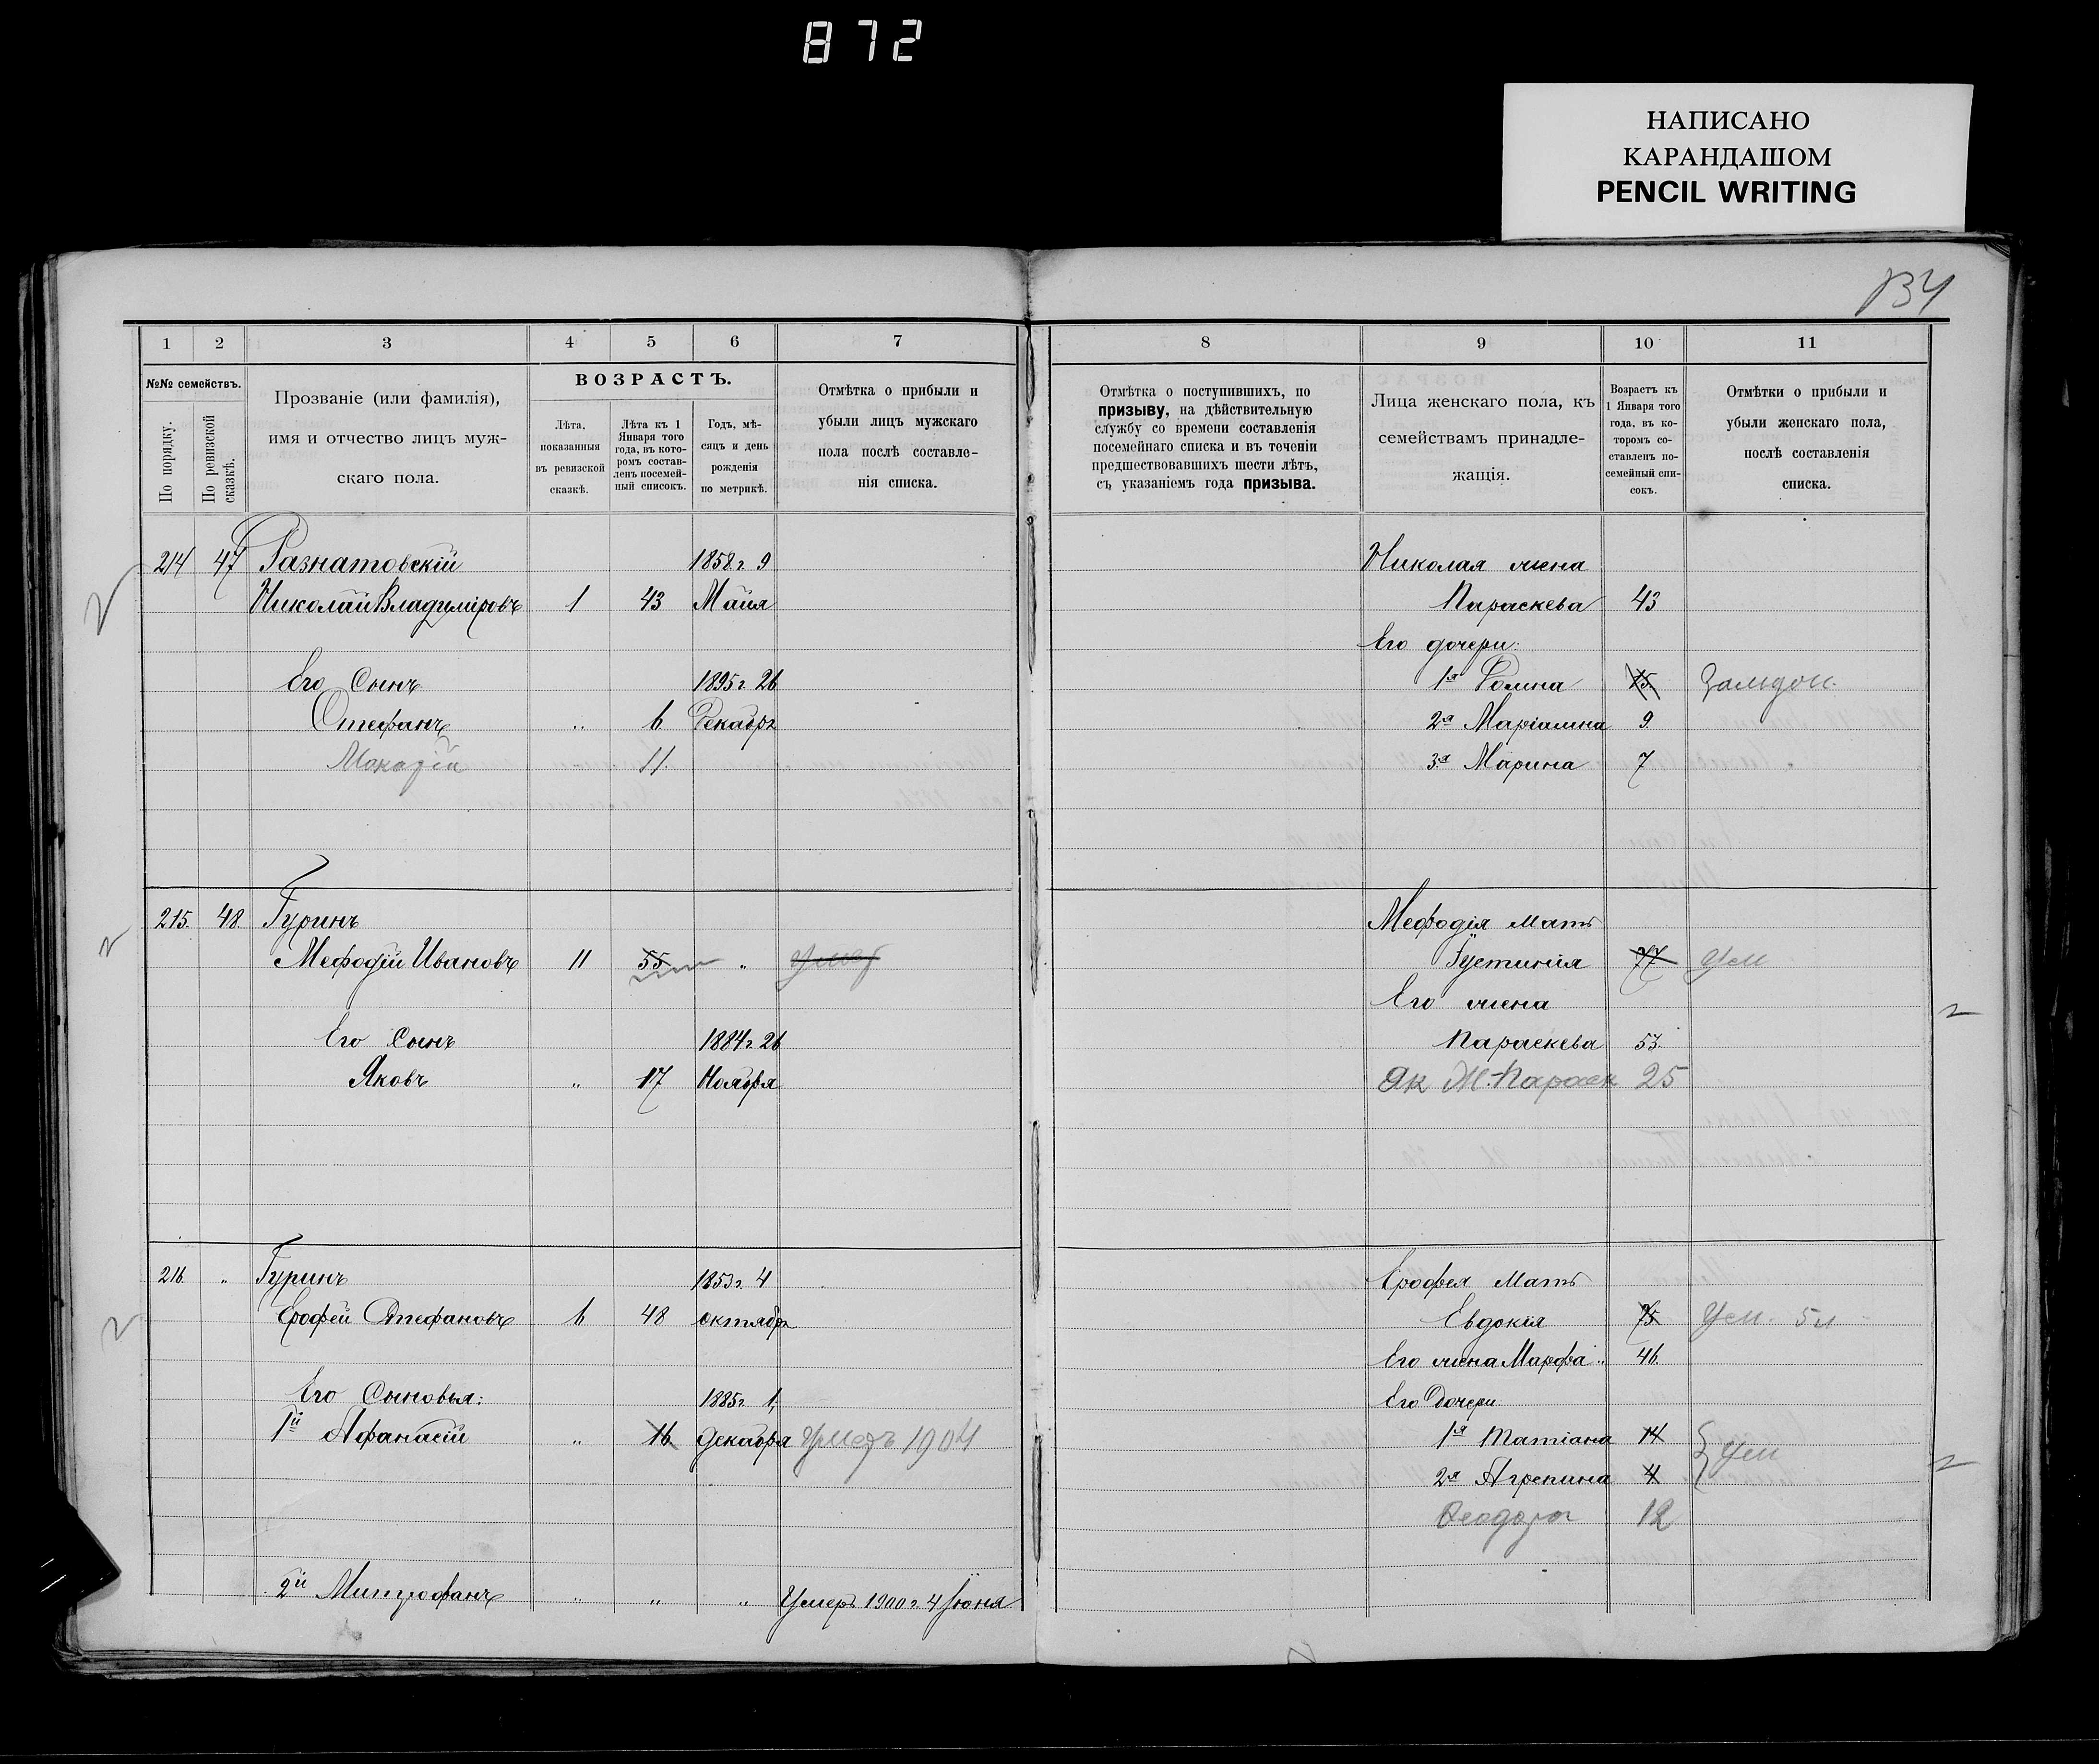 872
НАПИСАНО
КАРАНДАШОМ
PENCIL WRITING
134
1 2 3 4 5 6 7
№№ семействъ.
По порядку.
По ревизской сказкѣ.
Прозваніе (или фамилія),
имя и отчество лицъ муж-
скаго пола.
ВОЗРАСТЪ.
Лѣта,
показанныя
въ ревизской
сказкѣ.
Лѣта къ 1
Января того
года, въ кото-
ромъ состав-
ленъ посемей-
ный списокъ.
Годъ, мѣ-
сяцъ и день
рожденія
по метрикѣ.
Отмѣтка о прибыли и
убыли лицъ мужскаго
пола послѣ составле-
нія списка.
214 47 Разнатовскій 1858 г. 9
Николай Владиміровъ 1 43 Майя
Его Сынъ 1895 г. 26
Стефанъ „ 6 Декабря
11
215. 48. Гуринъ
Мефодій Ивановъ 11 55 „ умер
Его Сынъ 1884 г. 26
Яковъ „ 17 Ноября
216. „ Гуринъ 1853 г. 4
Ерофей Стефановъ 6 48 октября
Его Сыновья: 1885 г. 1,
1й Афанасій „ 16 Декабря умеръ 1904
2й Митрофанъ „ „ „ Умеръ 1900 г. 4 Іюня
8 9 10 11
Отмѣтка о поступившихъ, по
призыву, на дѣйствительную
службу со времени составленія
посемейнаго списка и въ теченіи
предшествовавшихъ шести лѣтъ,
съ указаніемъ года призыва.
Лица женскаго пола, къ
семействамъ принадле-
жащія.
Возрастъ къ
1 Января того
года, въ ко-
торомъ со-
ставленъ по-
семейный спи-
сокъ.
Отмѣтки о прибыли и
убыли женскаго пола,
послѣ составленія
списка.
Николая жена
Параскева 43
Его дочери:
1я 15
2я Маріамна 9.
3я Марина 7
Мефодія мать
Іустинія 77 Ум
Его жена
Параскева 53.
Як Ж. Параск 25
Ерофея мать
Евдокія 75 Ум.
Его жена Марфа „ 46.
Его Дочери:
1я Татіана 14
2я Агрепина 4 Ум
Феодора 12